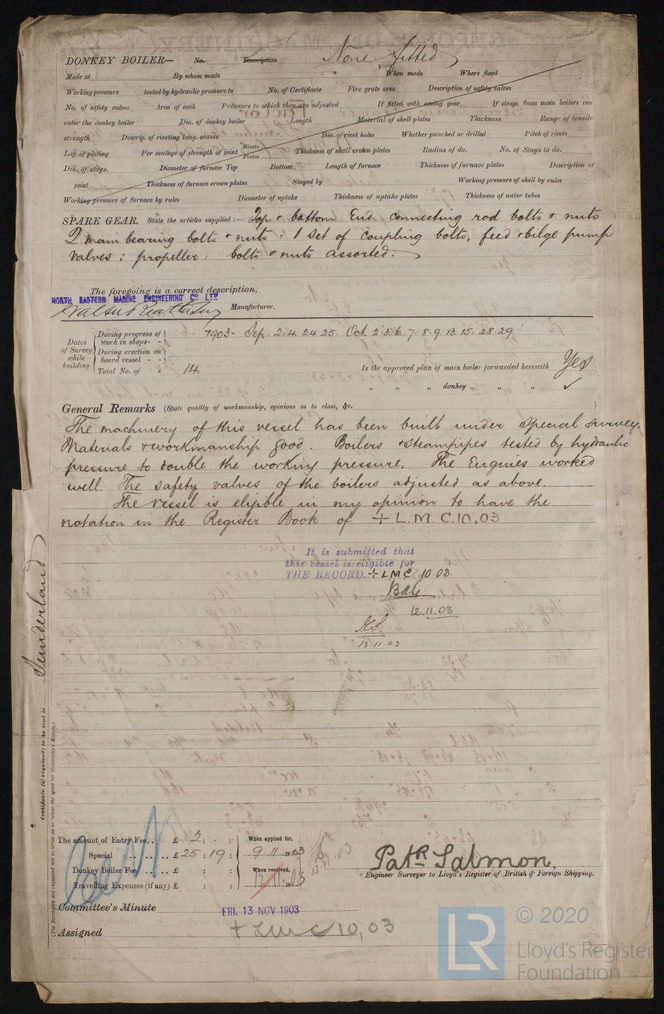 DONKEY BOILER— No. Description None fitted
Made at By whom made When made Where fixed
Working pressure tested by hydraulic pressure to No. of Certificate Fire grate area Description of safety valves
No. of safety valves Area of each Pressure to which they are adjusted If fitted with easing gear If steam from main boilers can
enter the donkey boiler Dia. of donkey boiler Length Material of shell plates Thickness Range of tensile
strength Descrip. of riveting long. seams Dia. of rivet holes Whether punched or drilled Pitch of rivets
Lap of plating Per centage of strength of joint Rivets Plates Thickness of shell crown plates Radius of do. No. of Stays to do.
Dia. of stays. Diameter of furnace Top Bottom Length of furnace Thickness of furnace plates Description of
joint Thickness of furnace crown plates Stayed by Working pressure of shell by rules
Working pressure of furnace by rules Diameter of uptake Thickness of uptake plates Thickness of water tubes
SPARE GEAR. State the articles supplied:— Top & bottom End connecting rod bolts & nuts
2 main bearing bolts & nuts: 1 set of coupling bolts, feed & bilge pump
valves: propeller: bolts & nuts assorted.
The foregoing is a correct description,
NORTH EASTERN MARINE ENGINEERING CO LTD
Manufacturer.
Dates of Survey while building
During progress of work in shops - - 1903- Sep. 2. 4. 24. 25. Oct. 2. 3. 6. 7. 8. 9. 13. 15. 28. 29
During erection on board vessel - -
Total No. of 14 Is the approved plan of main boiler forwarded herewith Yes
" " " donkey " " " ✓
General Remarks (State quality of workmanship, opinions as to class, &c.
The machinery of this vessel has been built under special survey.
Materials & workmanship good. Boilers & steampipes tested by hydraulic
pressure to double the working pressure. The Engines worked
well. The safety valves of the boilers adjusted as above.
The vessel is eligible in my opinion to have the
notation in the Register Book of + L.M.C. 10,03
It is submitted that
this vessel is eligible for
THE RECORD. + LMC 10 03
12.11.03
13.11.03
Sunderland
Certificate (if required) to be sent to
The amount of Entry Fee . . £ 2 : - :
Special . . . . £ 25 : 19 :
Donkey Boiler Fee . . £ : :
Travelling Expenses (if any) £ : :
When applied for,
9.11.03
When received,
Patk Salmon.
Engineer Surveyor to Lloyd's Register of British & Foreign Shipping.
Committee's Minute FRI. 13 NOV 1903
Assigned + LMC 10,03
LR © 2020
Lloyd's Register
Foundation